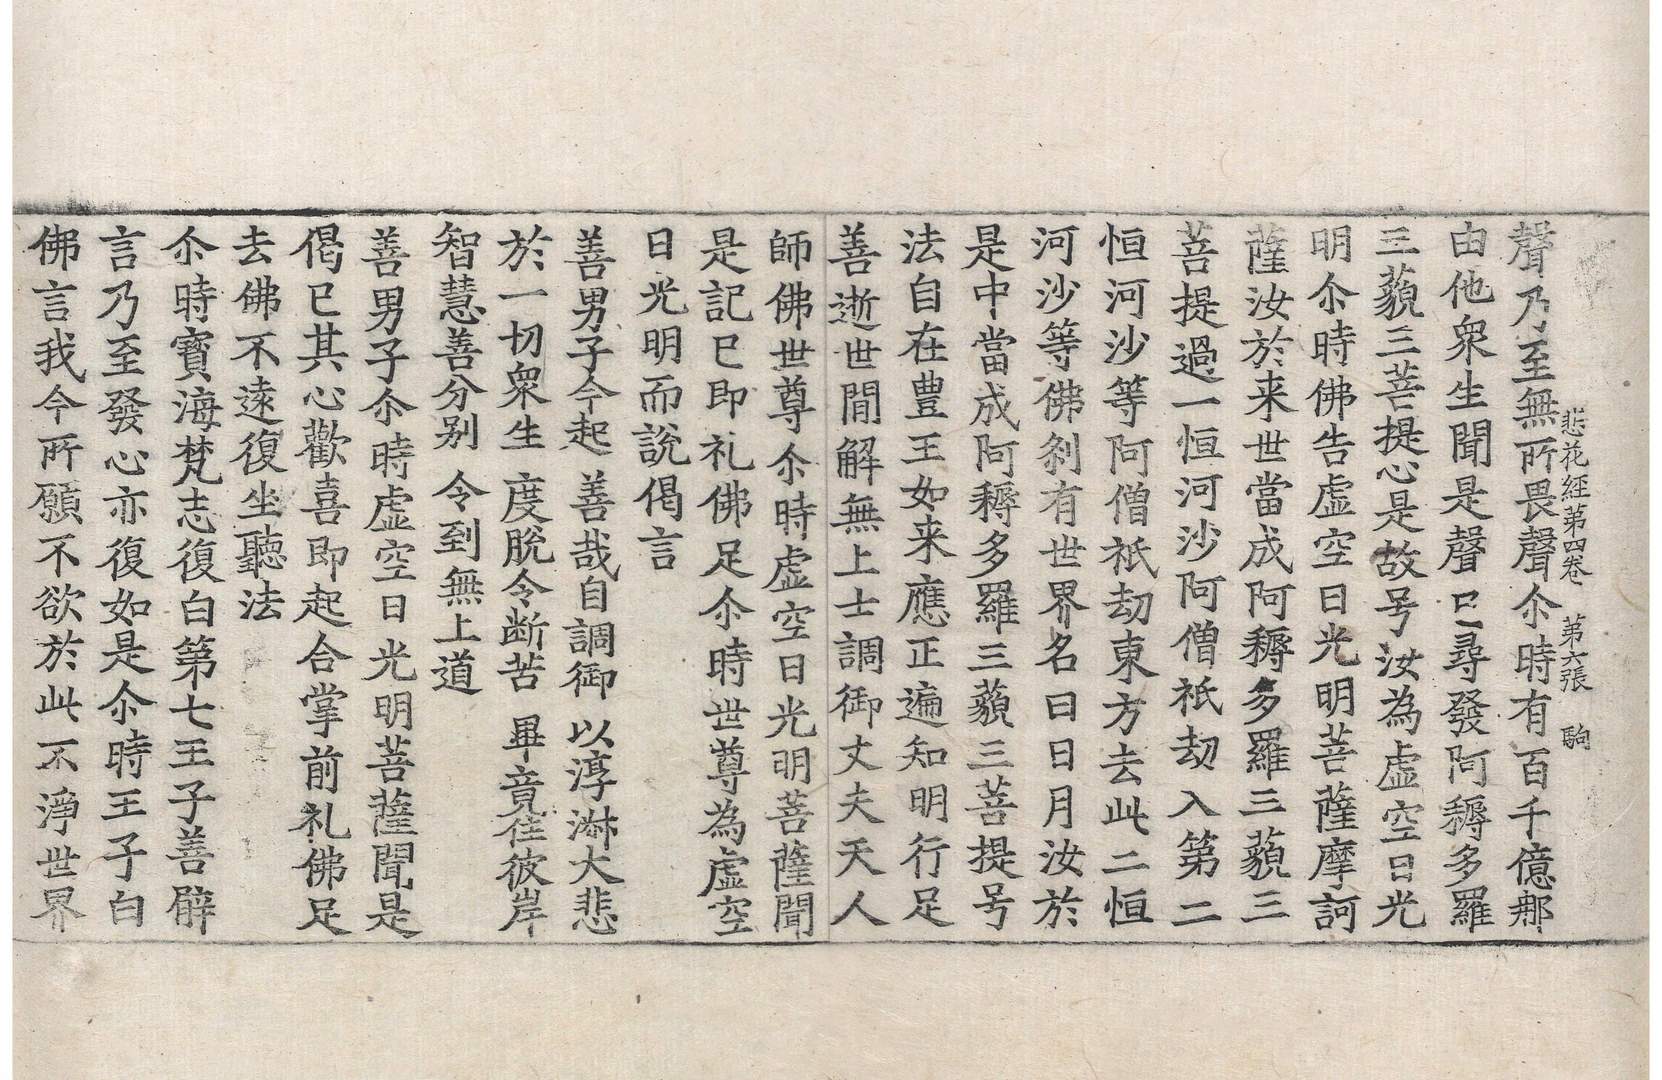 悲花經第四卷　第六張　駒
聲乃至無所畏聲尒時有百千億那
由他衆生聞是聲已尋發阿耨多羅
三藐三菩提心是故号汝為虛空日光
明尒時佛告虛空日光明菩薩摩訶
薩汝於来世當成阿耨多羅三藐三
菩提過一恒河沙阿僧祇劫入第二
恒河沙等阿僧祇劫東方去此二恒
河沙等佛剎有世界名曰日月汝於
是中當成阿耨多羅三藐三菩提号
法自在豊王如来應正遍知明行足
善逝世間解無上士調御丈夫天人
師佛世尊尒時虛空日光明菩薩聞
是記已即礼佛足尒時世尊為虛空
日光明而說偈言
善男子今起　善哉自調御　以淳淑大悲
於一切衆生　度脫令断苦　畢竟住彼岸
智慧善分别　令到無上道
善男子尒時虛空日光明菩薩聞是
偈已其心歡喜即起合掌前礼佛足
去佛不遠復坐聽法
尒時寶海梵志復白第七王子善臂
言乃至發心亦復如是尒時王子白
佛言我今所願不欲於此不淨世界